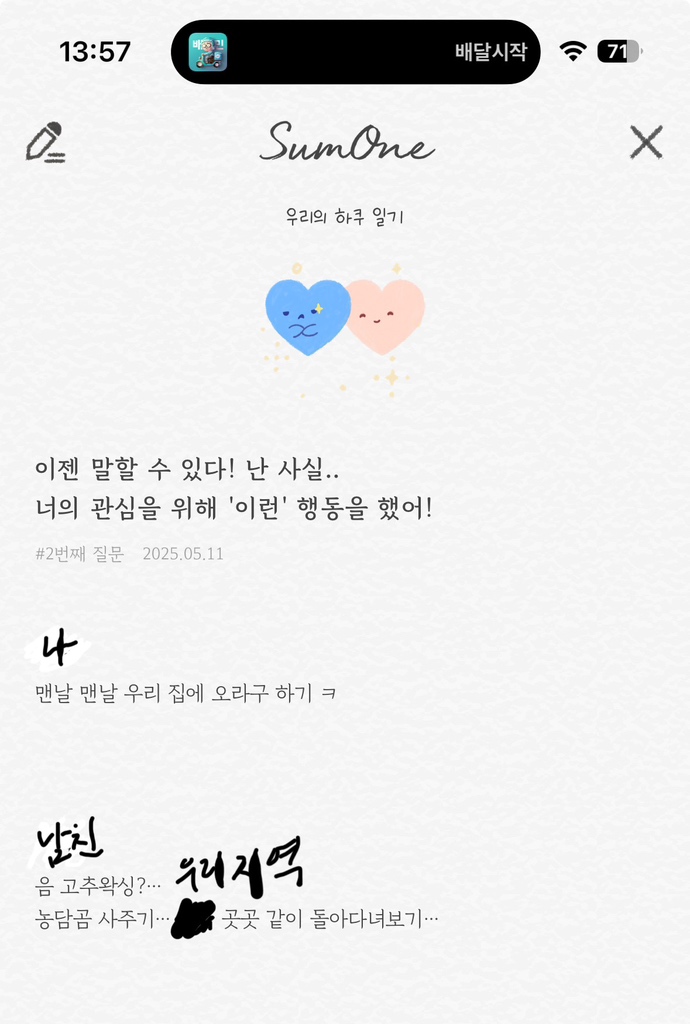 13:57
배달시작
71
SumOne
우리의 하루 일기
이젠 말할 수 있다! 난 사실..
너의 관심을 위해 '이런' 행동을 했어!
#2번째 질문 2025.05.11
나
맨날 맨날 우리 집에 오라구 하기 ㅋ
남친
음 고추왁싱?…
우리 지역
농담곰 사주기… 곳곳 같이 돌아다녀보기…